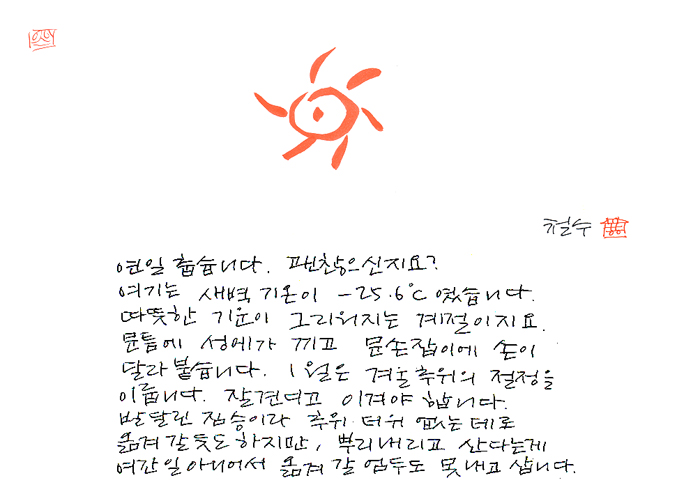 철수
연일 춥습니다. 괜찮으신지요?
여기는 새벽 기온이 -25.6°C 였습니다.
따뜻한 기운이 그리워지는 계절이지요.
문틈에 성에가 끼고 문손잡이에 손이
달라붙습니다. 1월은 겨울추위의 절정을
이룹니다. 잘견디고 이겨야 합니다.
발달린 짐승이라 추위 더위 없는 데로
옮겨갈 듯도 하지만, 뿌리내리고 산다는게
여간일아니어서 옮겨 갈 엄두도 못내고 삽니다.